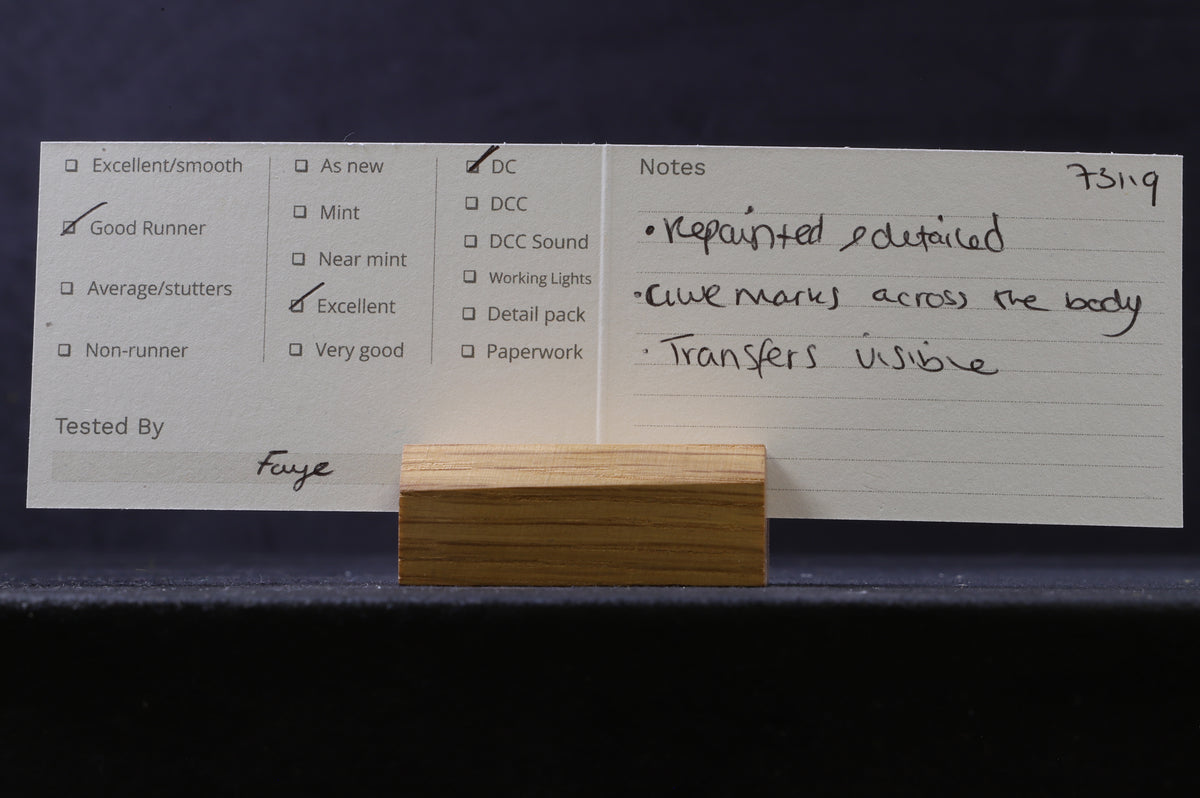 ☐ Excellent/smooth
☑ Good Runner
☐ Average/stutters
☐ Non-runner
☐ As new
☐ Mint
☐ Near mint
☑ Excellent
☐ Very good
☑ DC
☐ DCC
☐ DCC Sound
☐ Working Lights
☐ Detail pack
☐ Paperwork
Tested By
Faye
Notes
73119
• Repainted & detailed
• Glue marks across the body
• Transfers visible